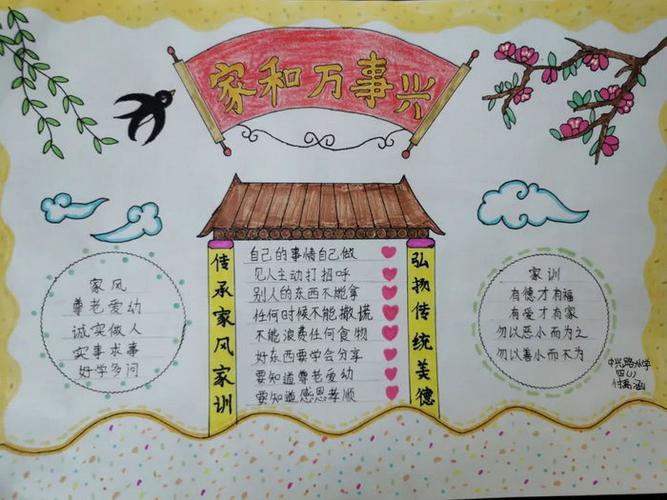 家和万事兴
家风
尊老爱幼
诚实做人
实事求事
好学多问
传承家风家训
自己的事情自己做
见人主动打招呼
别人的东西不能拿
任何时候不能撒谎
不能浪费任何食物
好东西要学会分享
要知道尊老爱幼
要知道感恩孝顺
弘扬传统美德
家训
有德才有福
有爱才有家
勿以恶小而为之
勿以善小而不为
中兴路小学
四(1)
付禹涵